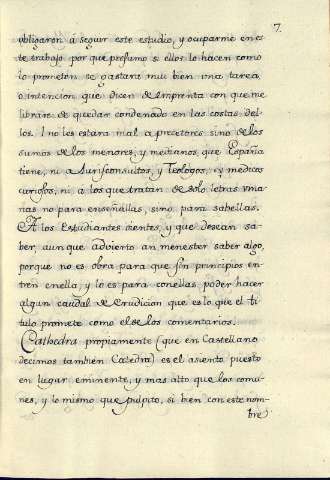 7.
obligaron á seguir este estudio, y ocuparme en es
te trabajo por que presumo si ellos lo hacen como
lo prometen se gastara mui bien una tarea
o intencion que dicen de Imprenta con que me
librare de quedar condenado en las costas del
los. I no les estara mal a precetores sino de los
sumos de los menores, y medianos que España
tiene, ni a Jurisconsultos, y Teologos, ni medicos
curiosos, ni a los que tratan de solo letras uma
nas no para enseñallas, sino para sabellas.
A los Estudiantes oientes, y que desean sa
ber, aunque advierto an menester saber algo,
porque no es obra para que sin principios en
tren en ella, y lo es para con ellas poder hacer
algun caudal de erudicion que es lo que el ti
tulo promete como el de los comentarios.
Cathedra propiamente (que en Castellano
decimos tambien Catedra) es el asiento puesto
en lugar eminente, y mas alto que los comu
nes, y lo mismo que pulpito, si bien con este nom-
bre